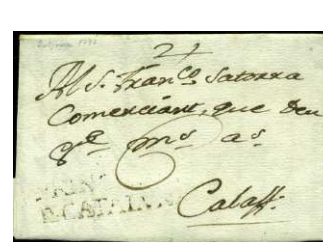 24
Al S.r Fran.co Satorra
Comerciant, que Deu
g.e m.s a.s
Calaff.
E.CATALUÑA